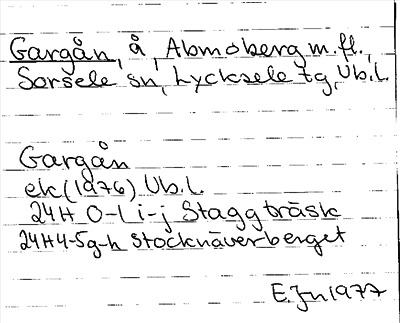 Gargån, å, Abmoberg m.fl.,
Sorsele sn, Lycksele tg, Vb.l.
Gargån
ek (1976) Vb.l.
24H 0-1 i-j Staggträsk
24H4-5g-h Stocknäverberget
E.Jn 1977